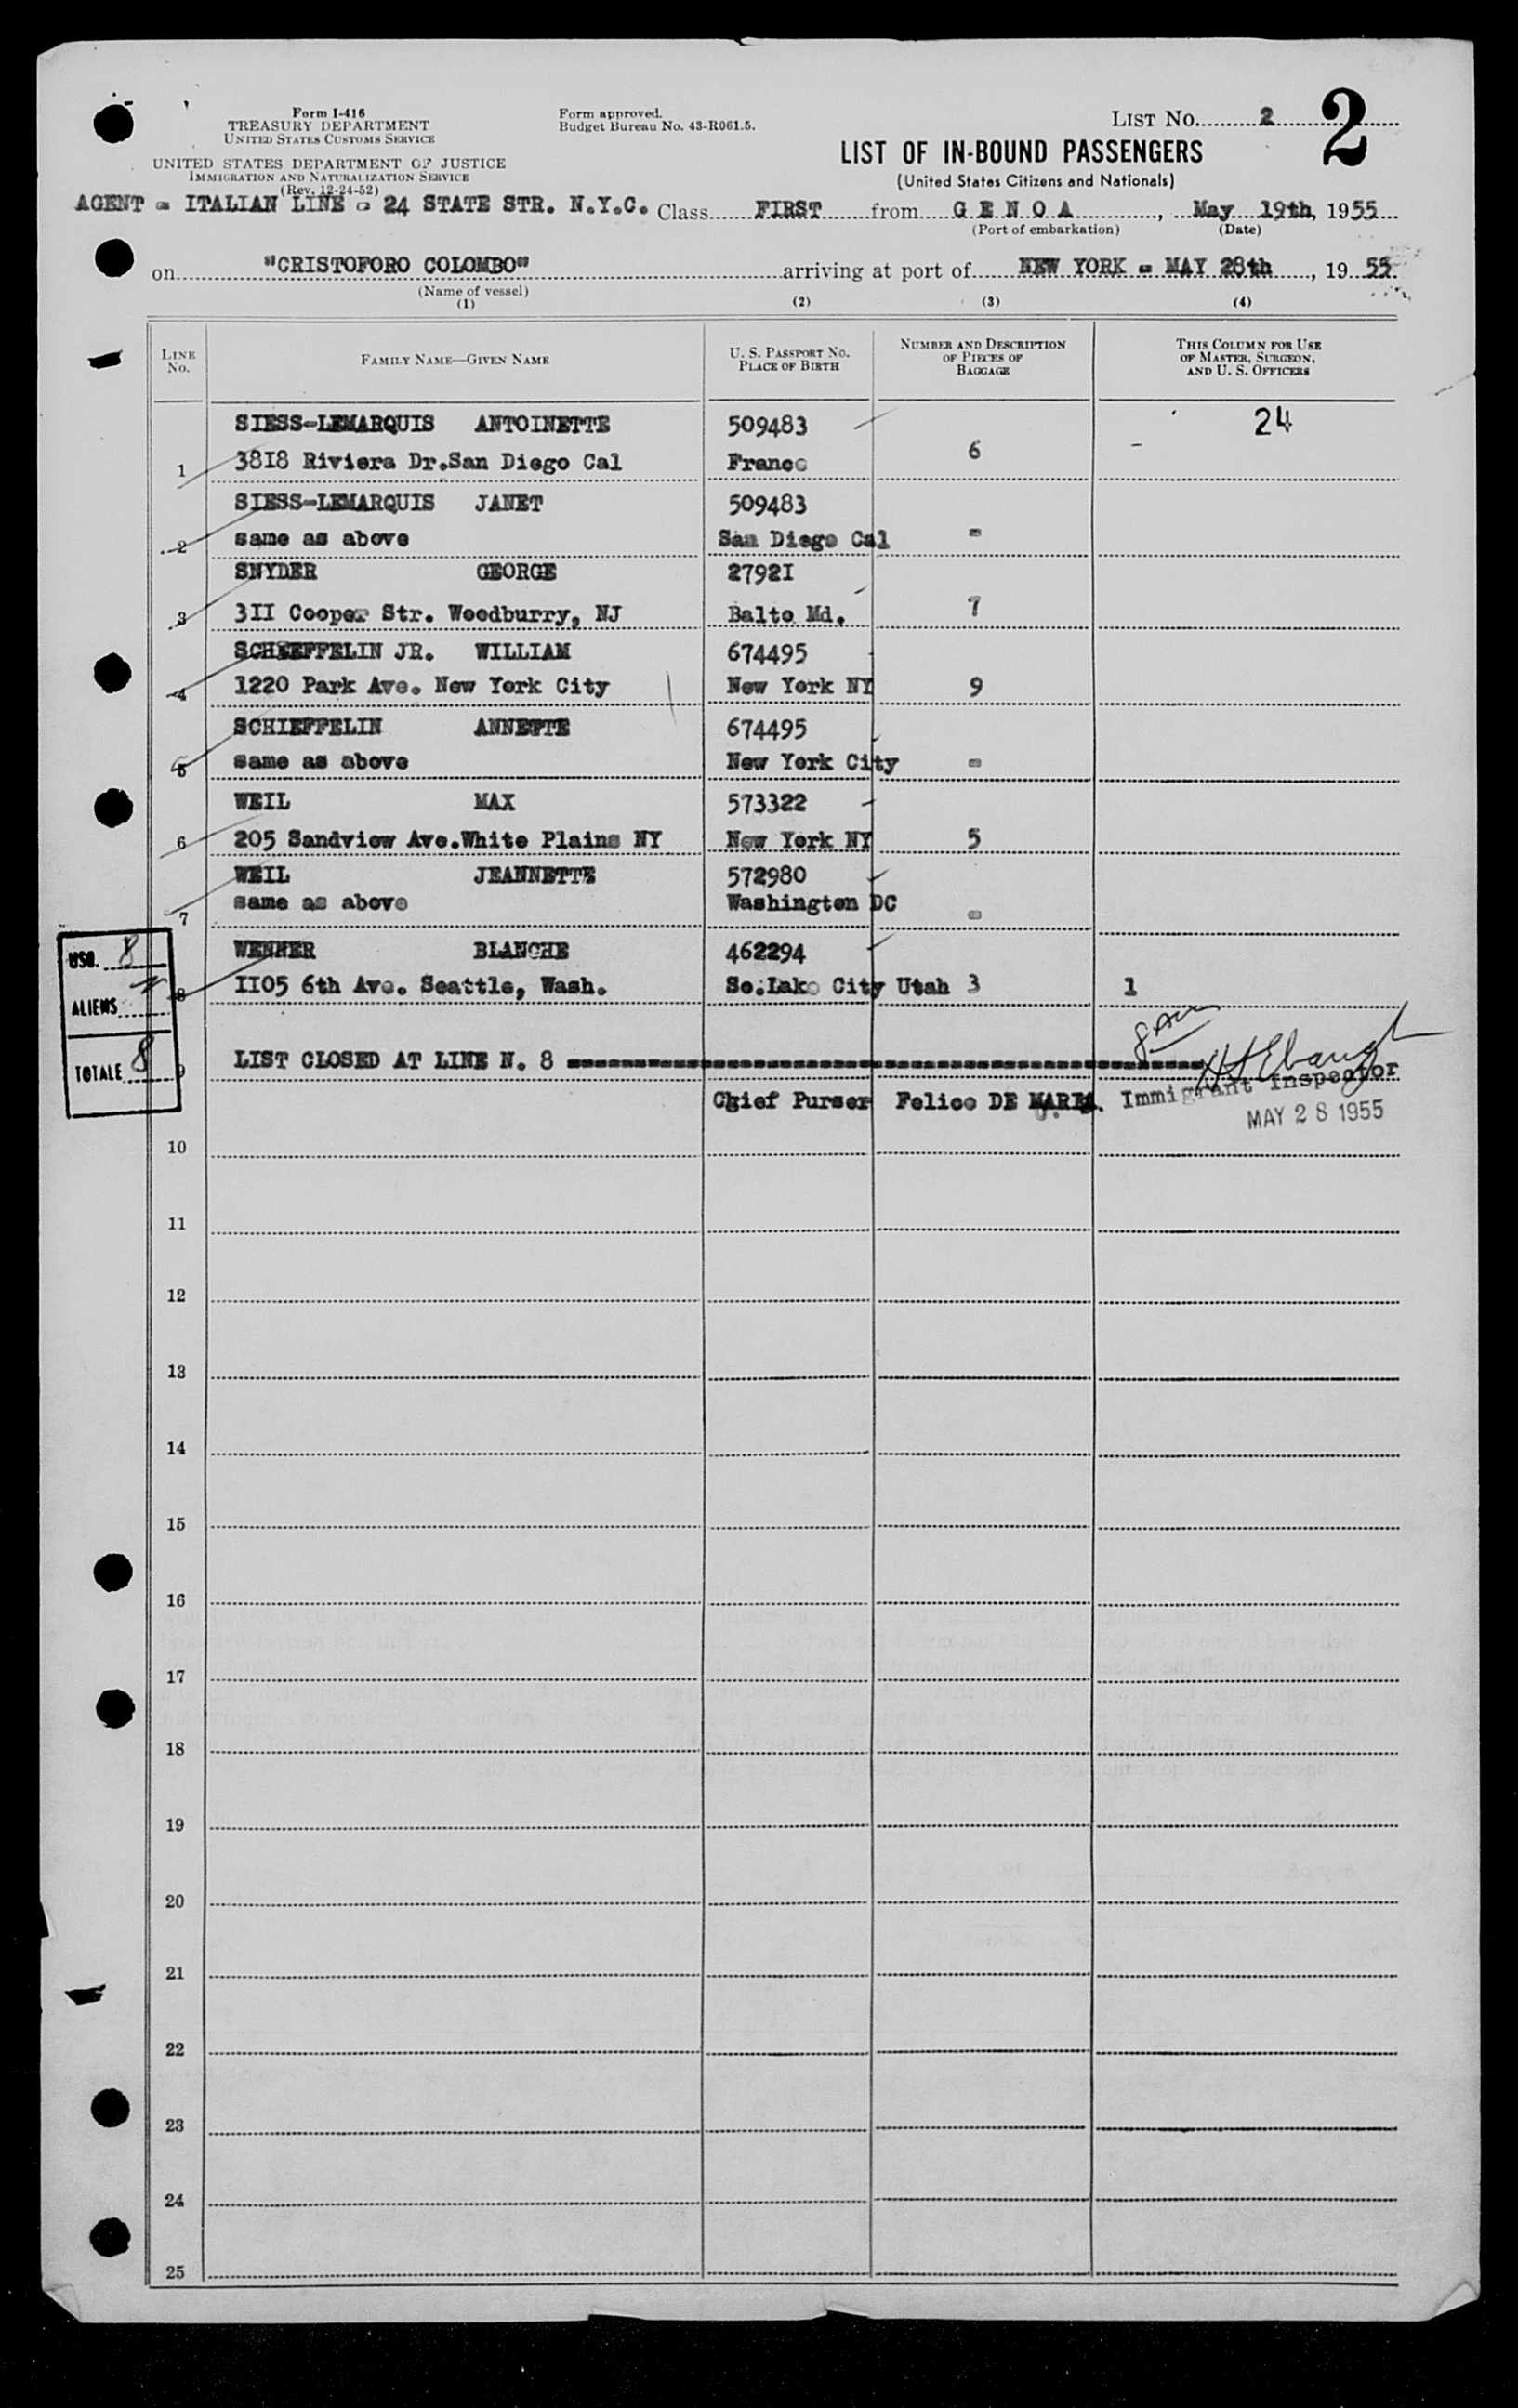 Form I-416
TREASURY DEPARTMENT
UNITED STATES CUSTOMS SERVICE
UNITED STATES DEPARTMENT OF JUSTICE
IMMIGRATION AND NATURALIZATION SERVICE
(Rev. 12-24-52)
Form approved.
Budget Bureau No. 43-R061.5.
LIST NO. 2
2
LIST OF IN-BOUND PASSENGERS
(United States Citizens and Nationals)
AGENT - ITALIAN LINE - 24 STATE STR. N.Y.C. Class FIRST from G E N O A, May 19th, 1955
(Port of embarkation) (Date)
on "CRISTOFORO COLOMBO" arriving at port of NEW YORK - MAY 28th, 1955
(Name of vessel)
(1) (2) (3) (4)
LINE NO. FAMILY NAME—GIVEN NAME U. S. PASSPORT NO. PLACE OF BIRTH NUMBER AND DESCRIPTION OF PIECES OF BAGGAGE THIS COLUMN FOR USE OF MASTER, SURGEON, AND U. S. OFFICERS
SIESS-LEMARQUIS ANTOINETTE 509483 24
1 3818 Riviera Dr.San Diego Cal France 6 -
SIESS-LEMARQUIS JANET 509483
2 same as above San Diego Cal -
SNYDER GEORGE 2792I
3 3II Cooper Str. Woodburry, NJ Balto Md. 7
SCHIEFFELIN JR. WILLIAM 674495
4 1220 Park Ave. New York City New York NY 9
SCHIEFFELIN ANNETTE 674495
5 same as above New York City -
WEIL MAX 573322
6 205 Sandview Ave.White Plains NY New York NY 5
WEIL JEANNETTE 572980
7 same as above Washington DC -
WENNER BLANCHE 462294
8 II05 6th Ave. Seattle, Wash. So.Lake City Utah 3 1
USO. 8
ALIENS
TOTALE 8
9 LIST CLOSED AT LINE N. 8
Chief Purser Felice DE MARIA. Immigrant Inspector
MAY 28 1955
10
11
12
13
14
15
16
17
18
19
20
21
22
23
24
25